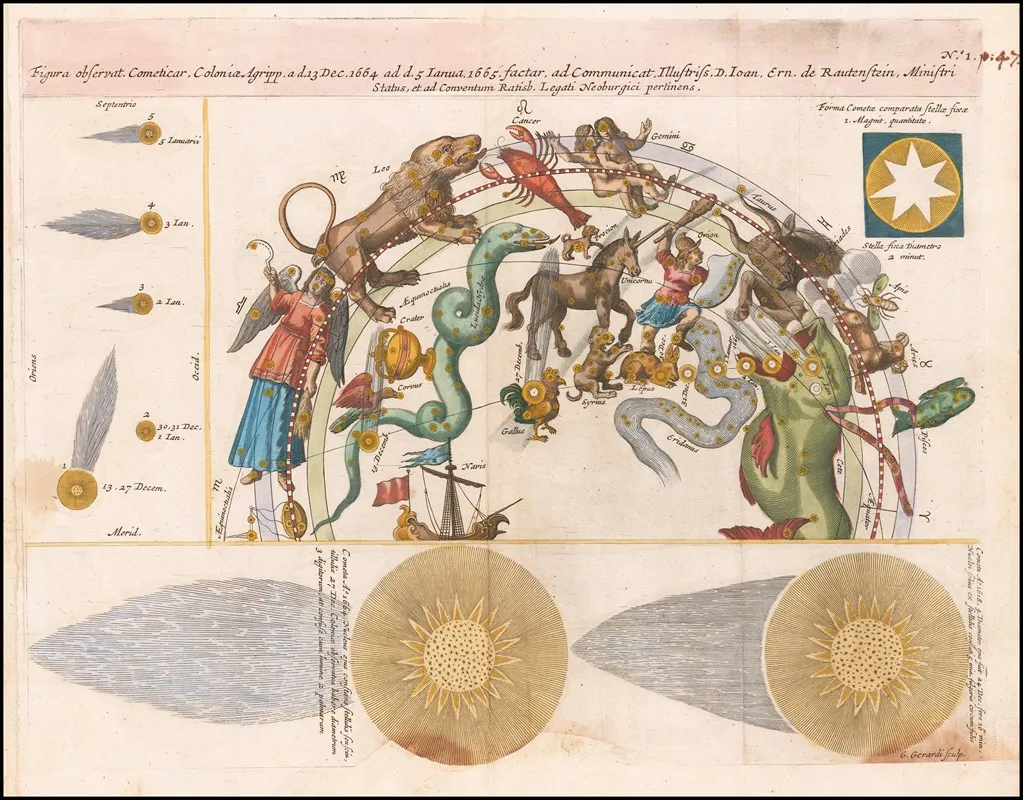 N.º 1. p: 47
Figura observat. Cometicar. Coloniæ Agripp. a d.13 Dec. 1664 ad d. 5 Ianua. 1665. factar. ad Communicat. Illustriss. D. Ioan. Ern. de Rautenstein, Ministri
Status, et ad Conventum Ratisb. Legati Neoburgici pertinens.
Septentrio
5
5 Ianuarii
4
3 Ian.
3
2 Ian.
Oriens
Occid.
2
30.31 Dec.
1 Ian.
1
13. 27 Decem.
Merid.
♌
Cancer
Gemini
♋
Leo
♍
Taurus
♓
Procion
Orion
Unicornu
Apis
Aries
Æquinoctialis
Crater
Lucida Hydræ
Corvus
27 Decemb.
Gallus
Syrius
Lepus
Eridanus
Pisces
Cete
Navis
♏
Æquinoctialis
Æquator
♈
Forma Cometæ comparata stellæ fixæ
1. Magnit. quantitate.
Stella fixa Diametro
2 minut.
Cometa Aº 1664. Nucleus ejus constans stellulis seu scin,
tillulis 27 Dec. Coloniæ observatus habere diametrum
3 digitorum, at confusè cum lumine 2 palmarum
Cometa Aº 1618.
G. Gerardi sculp.